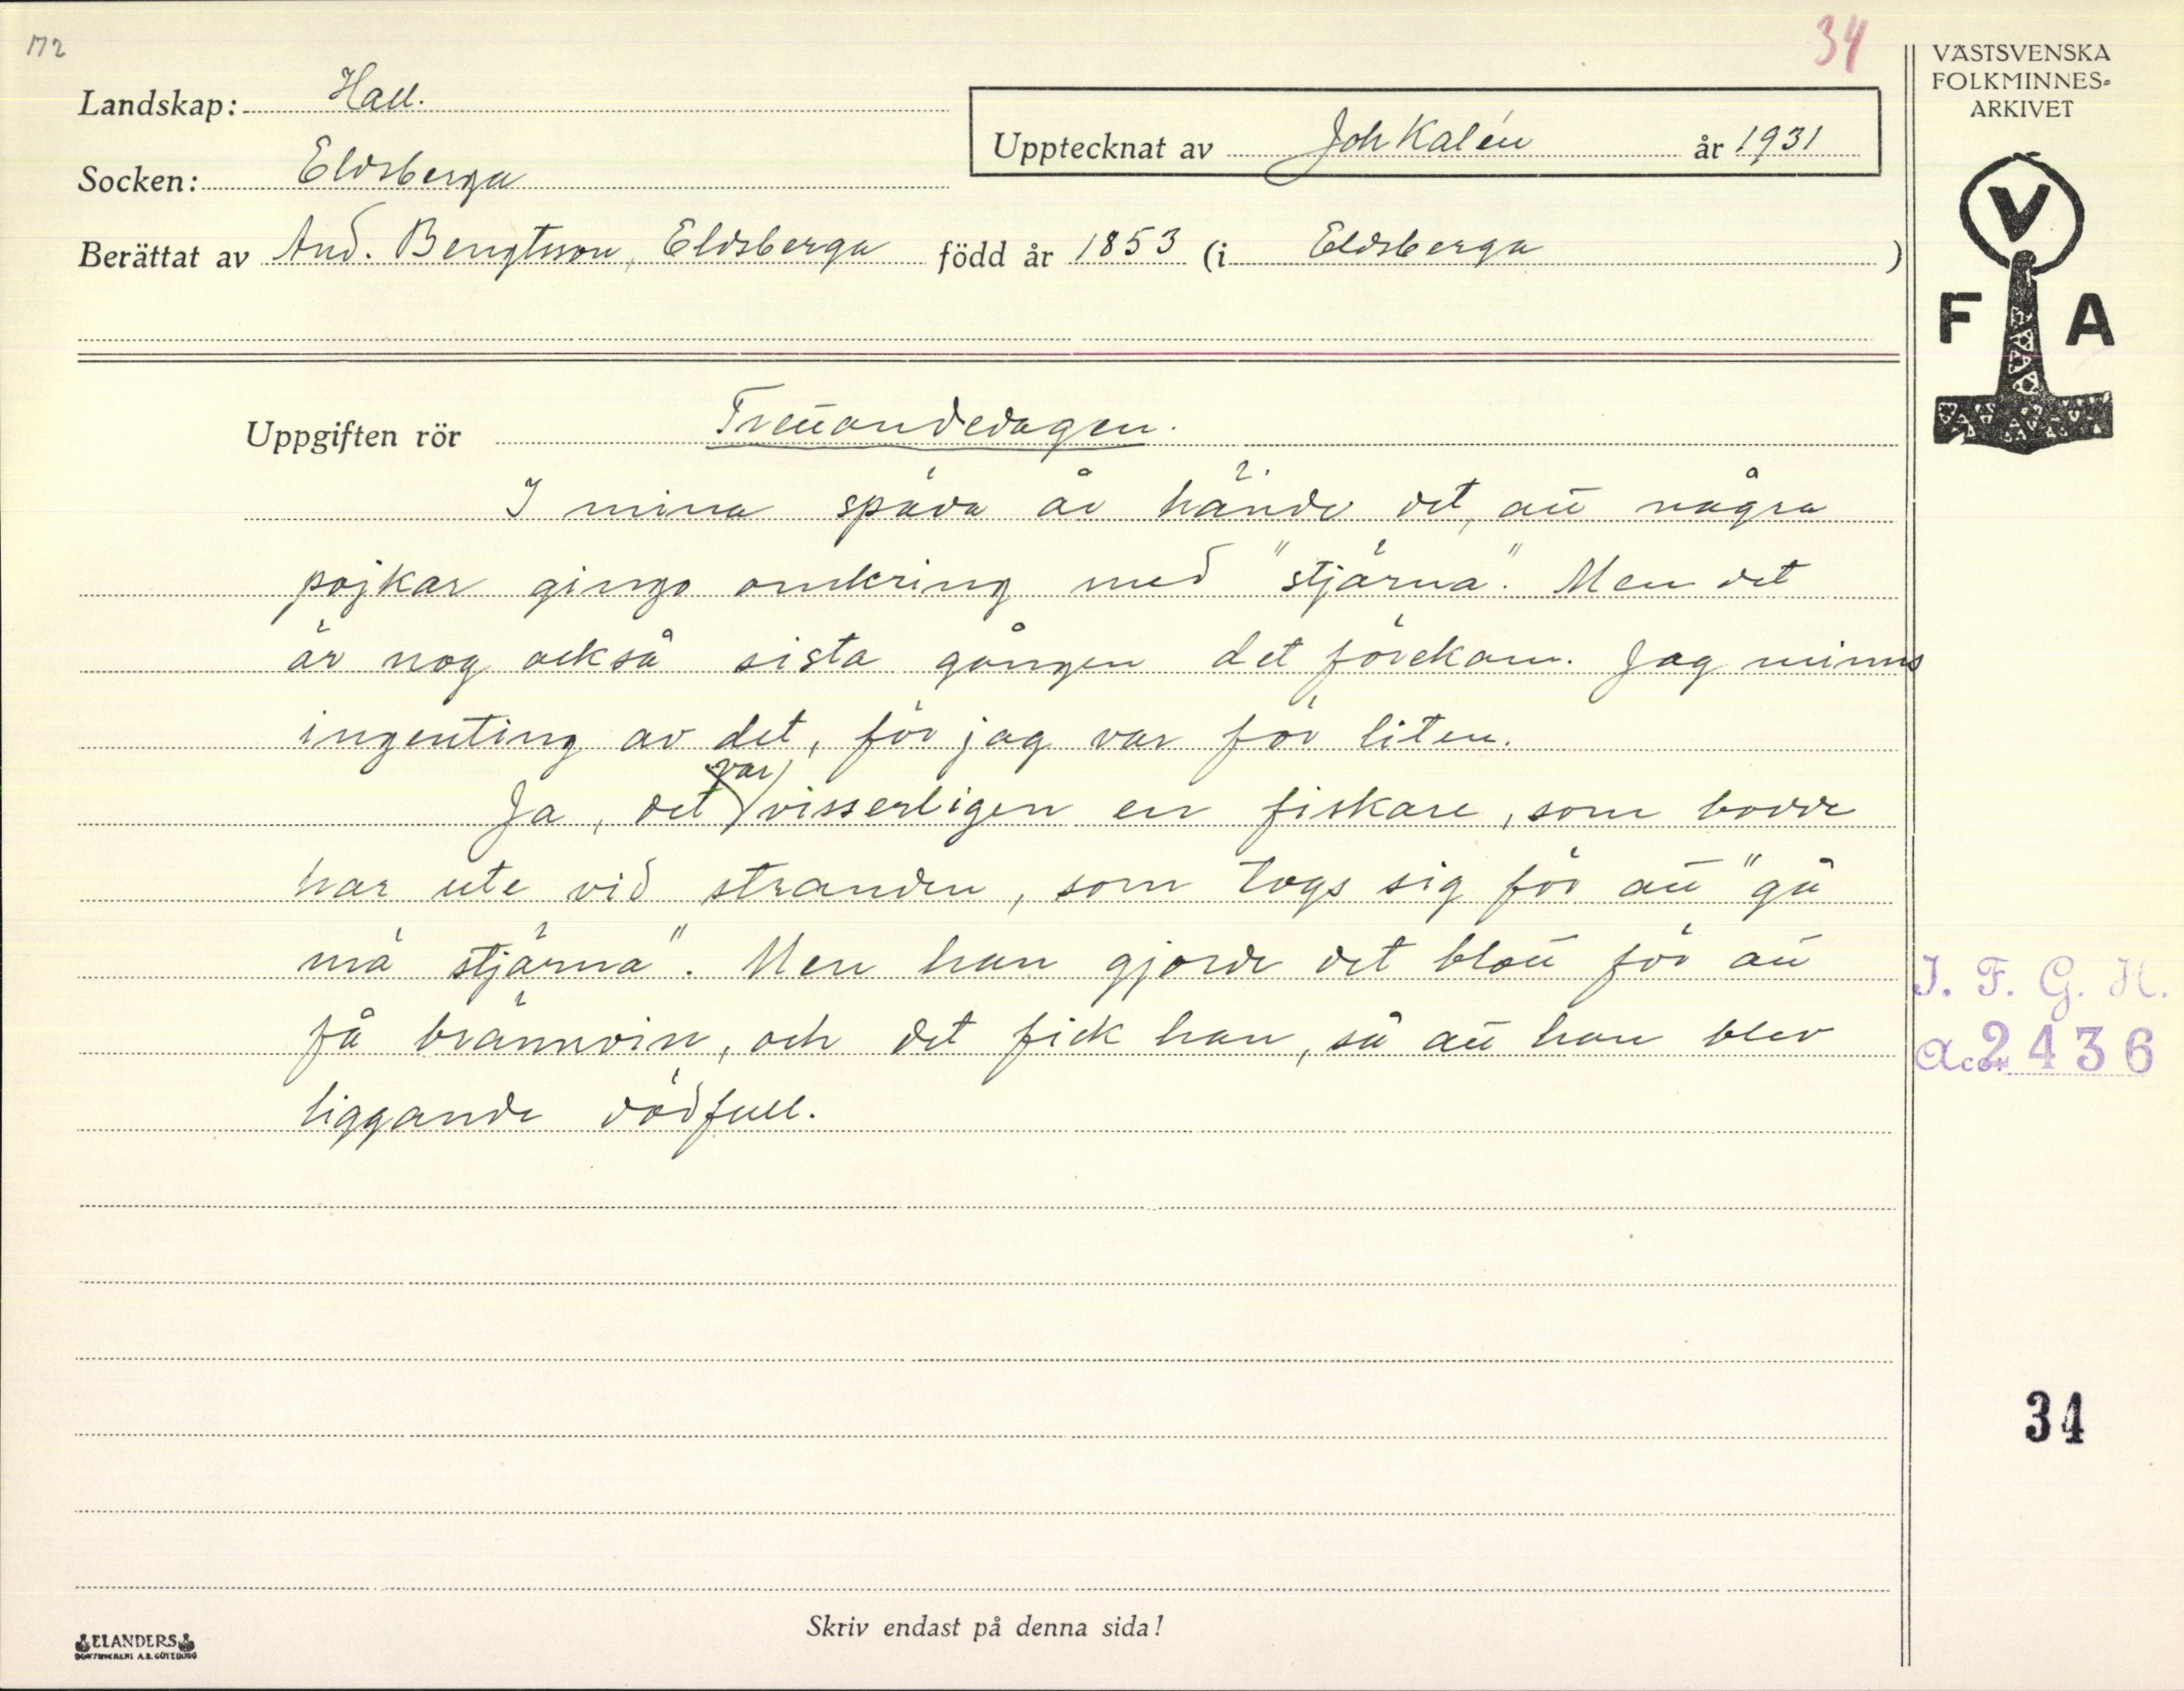 172
34
VÄSTSVENSKA
FOLKMINNES-
ARKIVET
Landskap: Hall.
Upptecknat av Joh Kalén år 1931
Socken: Eldsberga
Berättat av And. Bengtsson, Eldsberga född år 1853 (i Eldsberga )
V
F A
Uppgiften rör Trettondedagen.
I mina späda år hände det, att några
pojkar gingo omkring med "stjärna". Men det
är nog också sista gången det förekom. Jag minns
ingenting av det, för jag var för liten.
Ja, det var visserligen en fiskare, som bodde
här ute vid stranden, som togs sig för att "gå
mä stjärna". Men han gjorde det blott för att
få brännvin, och det fick han, så att han blev
liggande dödfull.
I. F. G. H.
Acc. 2436
34
Skriv endast på denna sida!
ELANDERS
BOKTRYCKERI A.B. GÖTEBORG